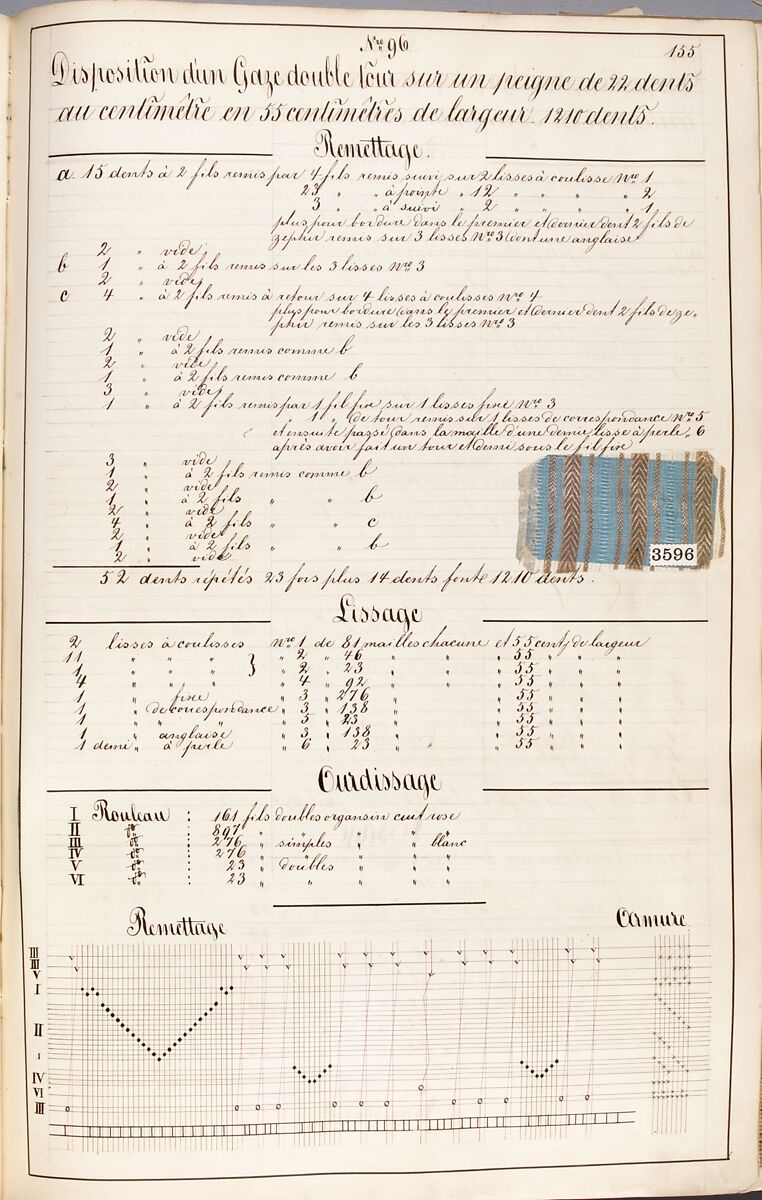 Nro 96
155
Disposition d'un Gaze double tour sur un peigne de 22 dents
au centimétre en 55 centimétres de largeur. 1210 dents.
Remettage.
a. 15 dents à 2 fils remis par 4 fils remis suivi sur 2 lisses à coulisse Nro 1
23 " " à pointe " 12 " " " " 2
3 " " à suivi " 2 " " " " 1
plus pour bordure dans le premier et dernier dent 2 fils de
zephir remis sur 3 lisses Nro 3 dont une anglaise
2 " vide
b 1 " à 2 fils remis sur les 3 lisses Nro 3
2 " vide
c 4 " à 2 fils remis à retour sur 4 lisses à coulisses Nro 4
plus pour bordure dans le premier et dernier dent 2 fils de ze-
phir remis sur les 3 lisses Nro 3
2 " vide
1 " à 2 fils remis comme b
2 " vide
1 " à 2 fils remis comme b
3 " vide
1 " à 2 fils remis par 1 fil fixe sur 1 lisses fixe Nro 3
1 " de tour remis sur 1 lisses de correspondance Nro 5
et ensuite passé dans la maille d'une demie lisse à perle " 6
après avoir fait un tour et demi sous le fil fixe
3 " vide
1 " à 2 fils remis comme b
2 " vide
1 " à 2 fils " " b
2 " vide
4 " à 2 fils " " c
2 " vide
1 " à 2 fils " " b
2 " vide
3596
52 dents répétés 23 fois plus 14 dents font 1210 dents.
Lissage
2 lisses à coulisses Nro 1 de 81 mailles chacune et 55 cent. de largeur
11 " " " } " 2 " 46 " " " 55 " " "
1 " " " " 2 " 23 " " " 55 " " "
4 " " " " 4 " 92 " " " 55 " " "
1 " fixe " 3 " 276 " " 55 " " "
1 " de correspondance " 3 " 138 " " 55 " " "
1 " " " " 5 " 23 " " 55 " " "
1 " anglaise " 3 " 138 " " 55 " " "
1 demi " à perle " 6 " 23 " " 55 " " "
Ourdissage
I Rouleau : 161 fils doubles organsin cuit rose
II do : 897 " " " "
III do : 276 " simples " " blanc
IV do : 276 " " " "
V do : 23 " doubles " " "
VI do : 23 " " " " "
Remettage
Armure.
III
IV
V
I
II
I
IV
VI
III